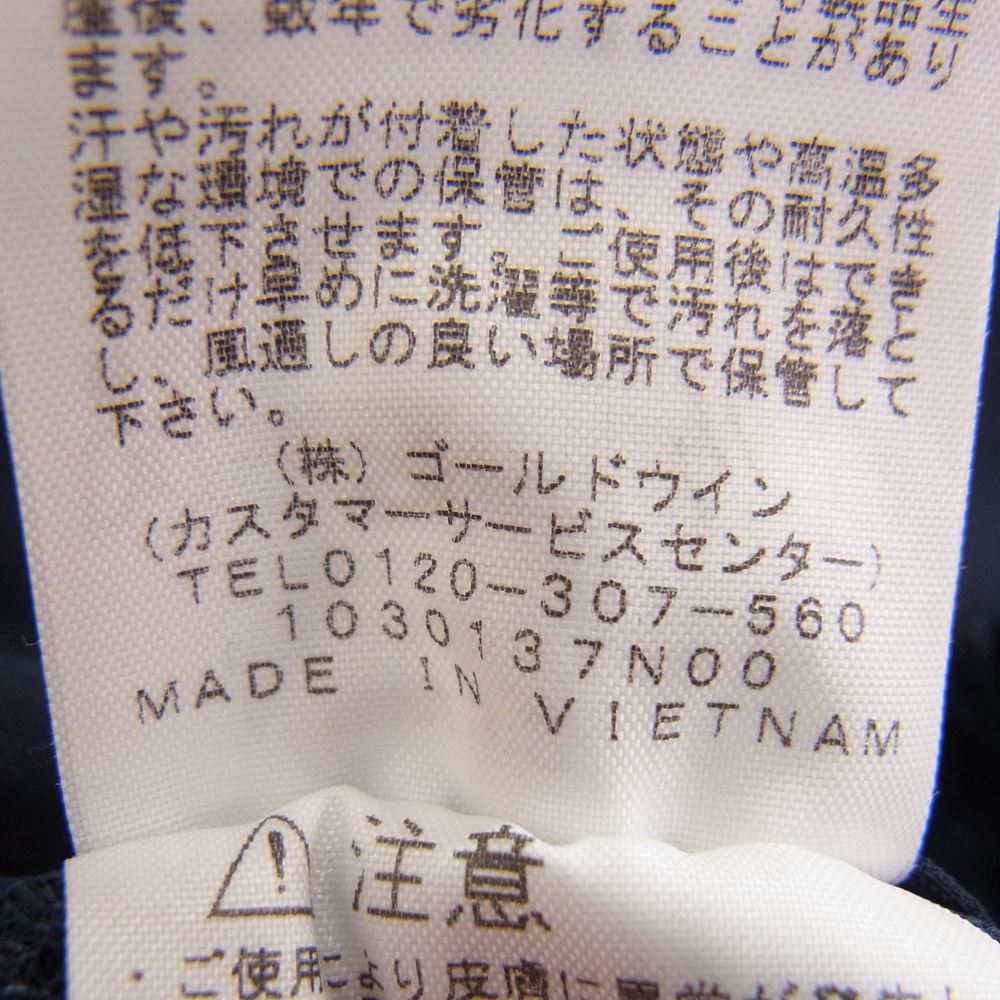 品生
産後、数年で劣化することがあり
ます。
汗や汚れが付着した状態や高温多
湿な環境での保管は、その耐久性
を低下させます。ご使用後はでき
るだけ早めに洗濯等で汚れを落と
し、風通しの良い場所で保管して
下さい。
（株）ゴールドウイン
（カスタマーサービスセンター）
TEL0120-307-560
1030137N00
MADE IN VIETNAM
注意
・ご使用により皮膚に異常が発生し